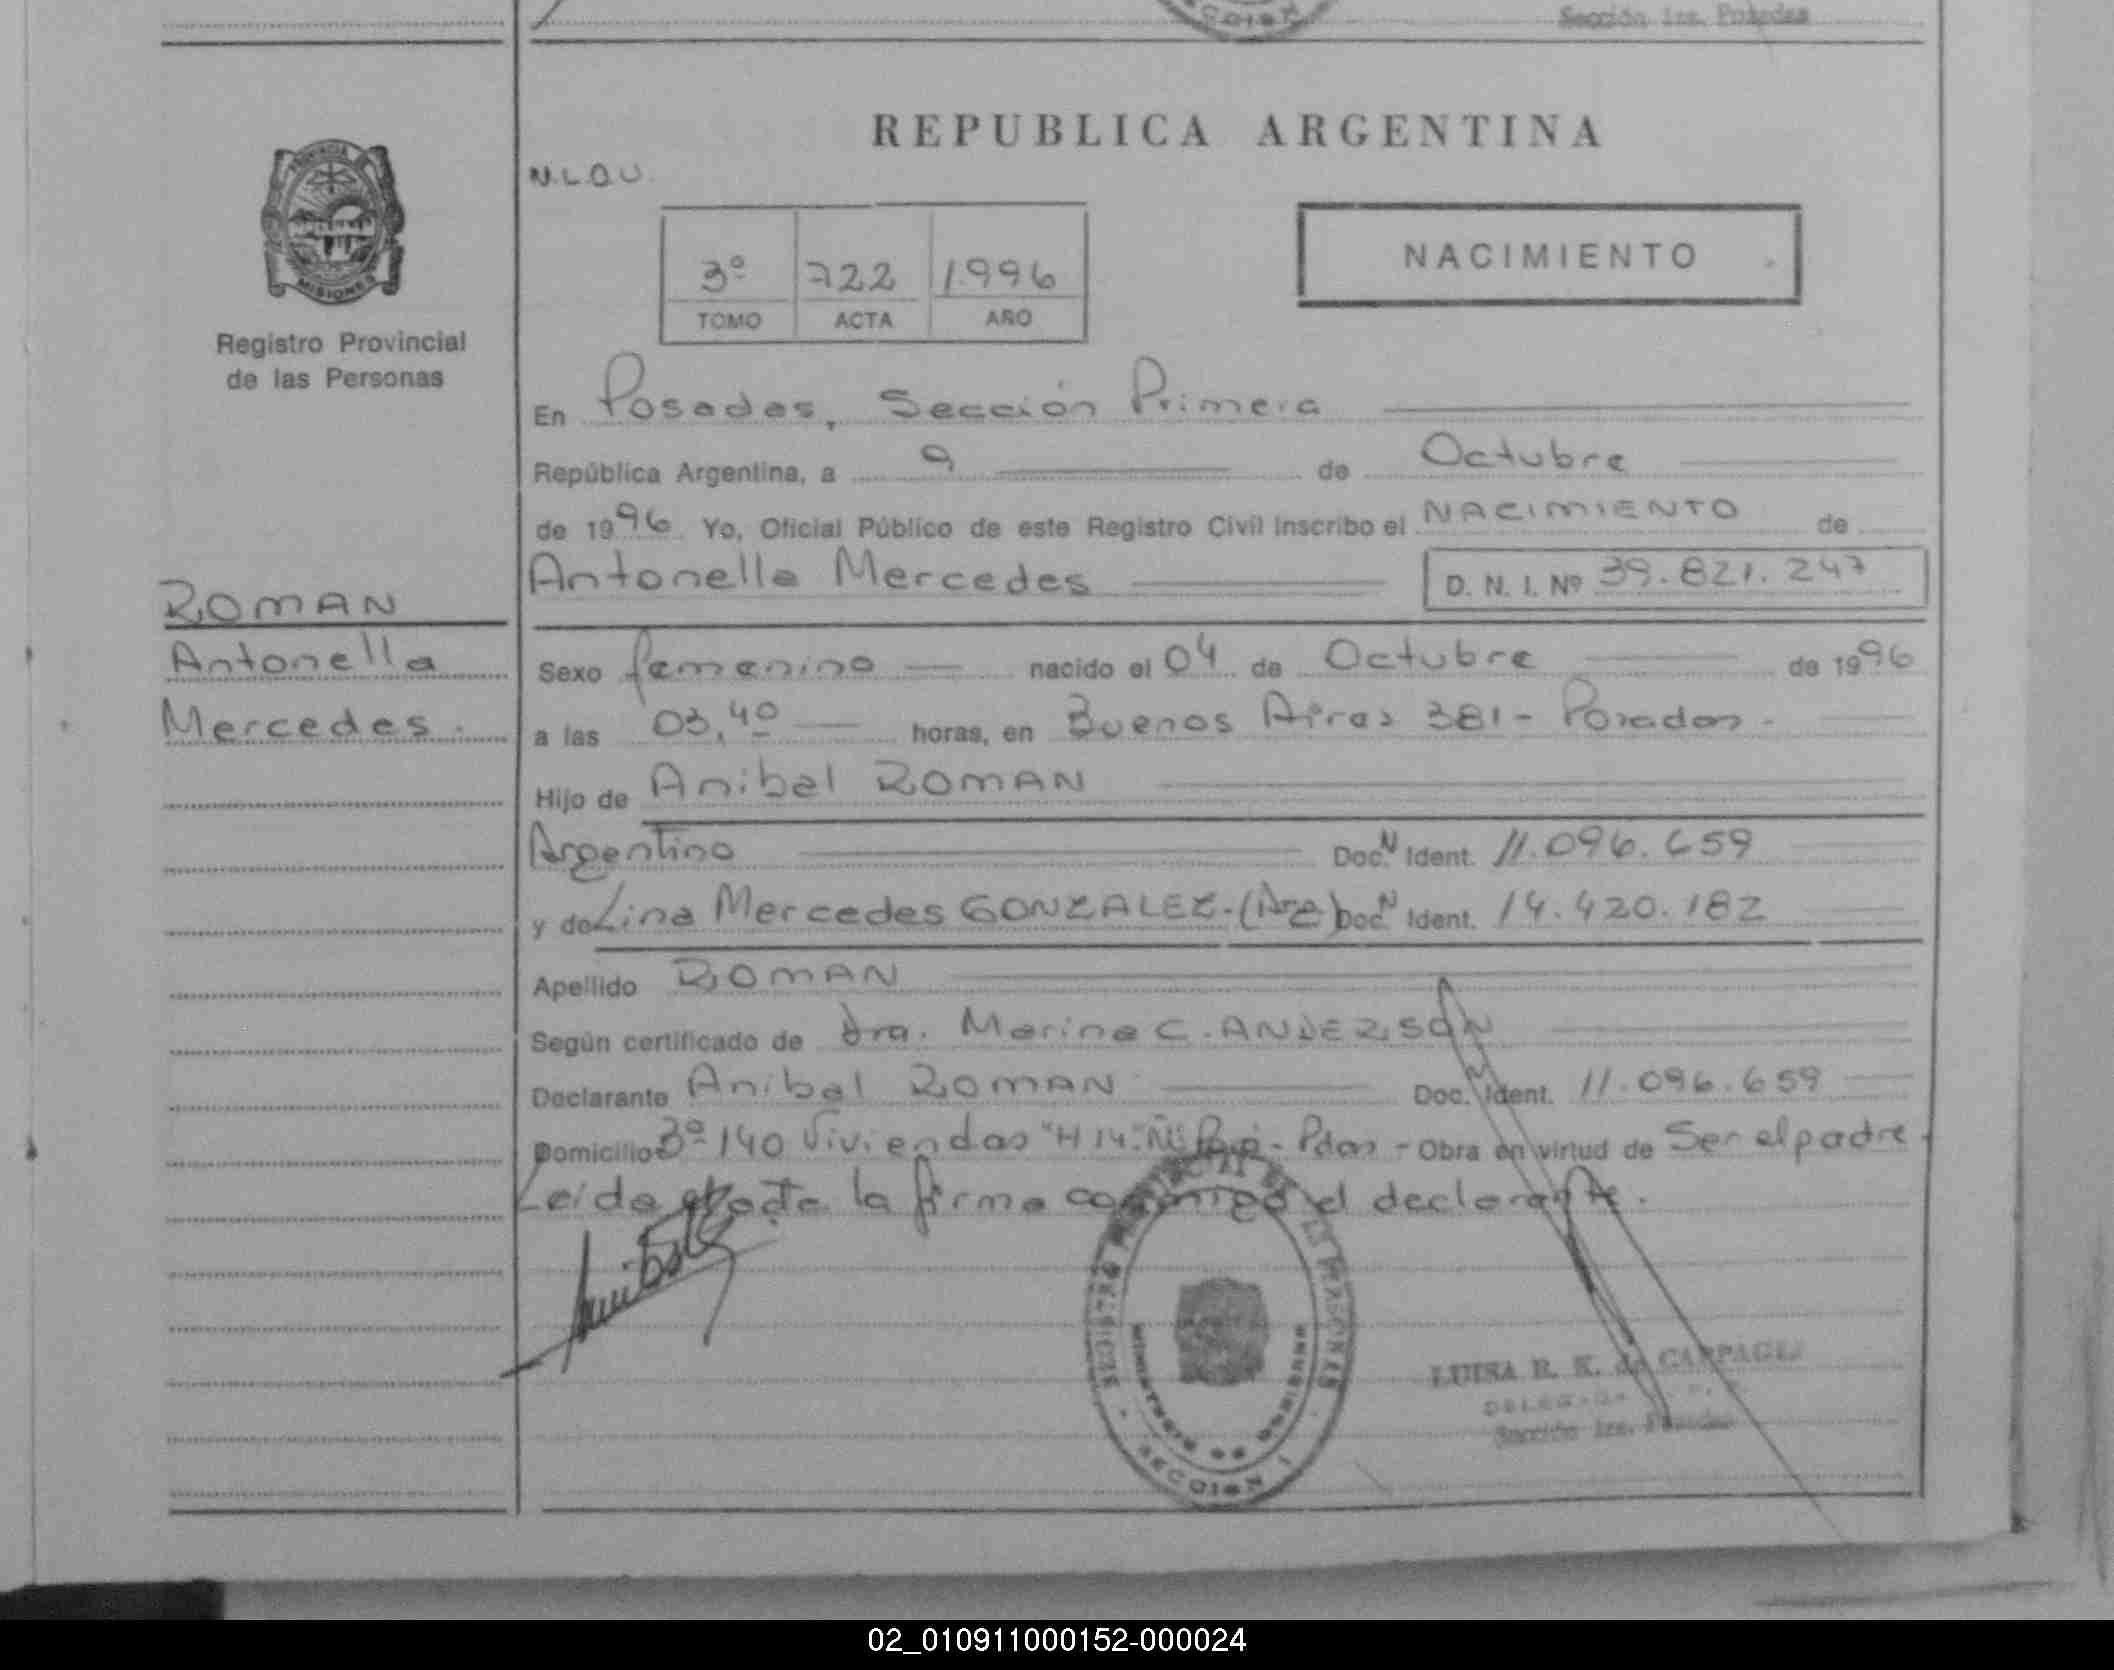 Sección 1ra. Posadas
REPUBLICA ARGENTINA
N.L.O.U.
PROVINCIA
MISIONES
Registro Provincial
de las Personas
3º 722 1996
TOMO ACTA AÑO
NACIMIENTO
En Posadas, Sección Primera
República Argentina, a 9 de Octubre
de 1996 Yo, Oficial Público de este Registro Civil inscribo el NACIMIENTO de
Antonella Mercedes D. N. I. Nº 39.821.247
ROMAN
Antonella
Mercedes.
Sexo femenino nacido el 04 de Octubre de 1996
a las 03,40 horas, en Buenos Aires 381 - Posadas -
Hijo de Anibal ROMAN
Argentino Doc. N Ident. 11.096.659
y de Lina Mercedes GONZALEZ - (Arg) Doc. N Ident. 14.420.182
Apellido ROMAN
Según certificado de dra. Marina C. ANDERSON
Declarante Anibal ROMAN Doc. N Ident. 11.096.659
Domicilio 3º 140 Viviendas "H 14" - Pdas - Obra en virtud de Ser el padre.
Leida el acta la firma conmigo el declarante.
REGISTRO PROVINCIAL DE LAS PERSONAS
MINISTERIO DE GOBIERNO
SECCION 1
LUISA R. K. de
Sección 1ra. Posadas
02_010911000152-000024